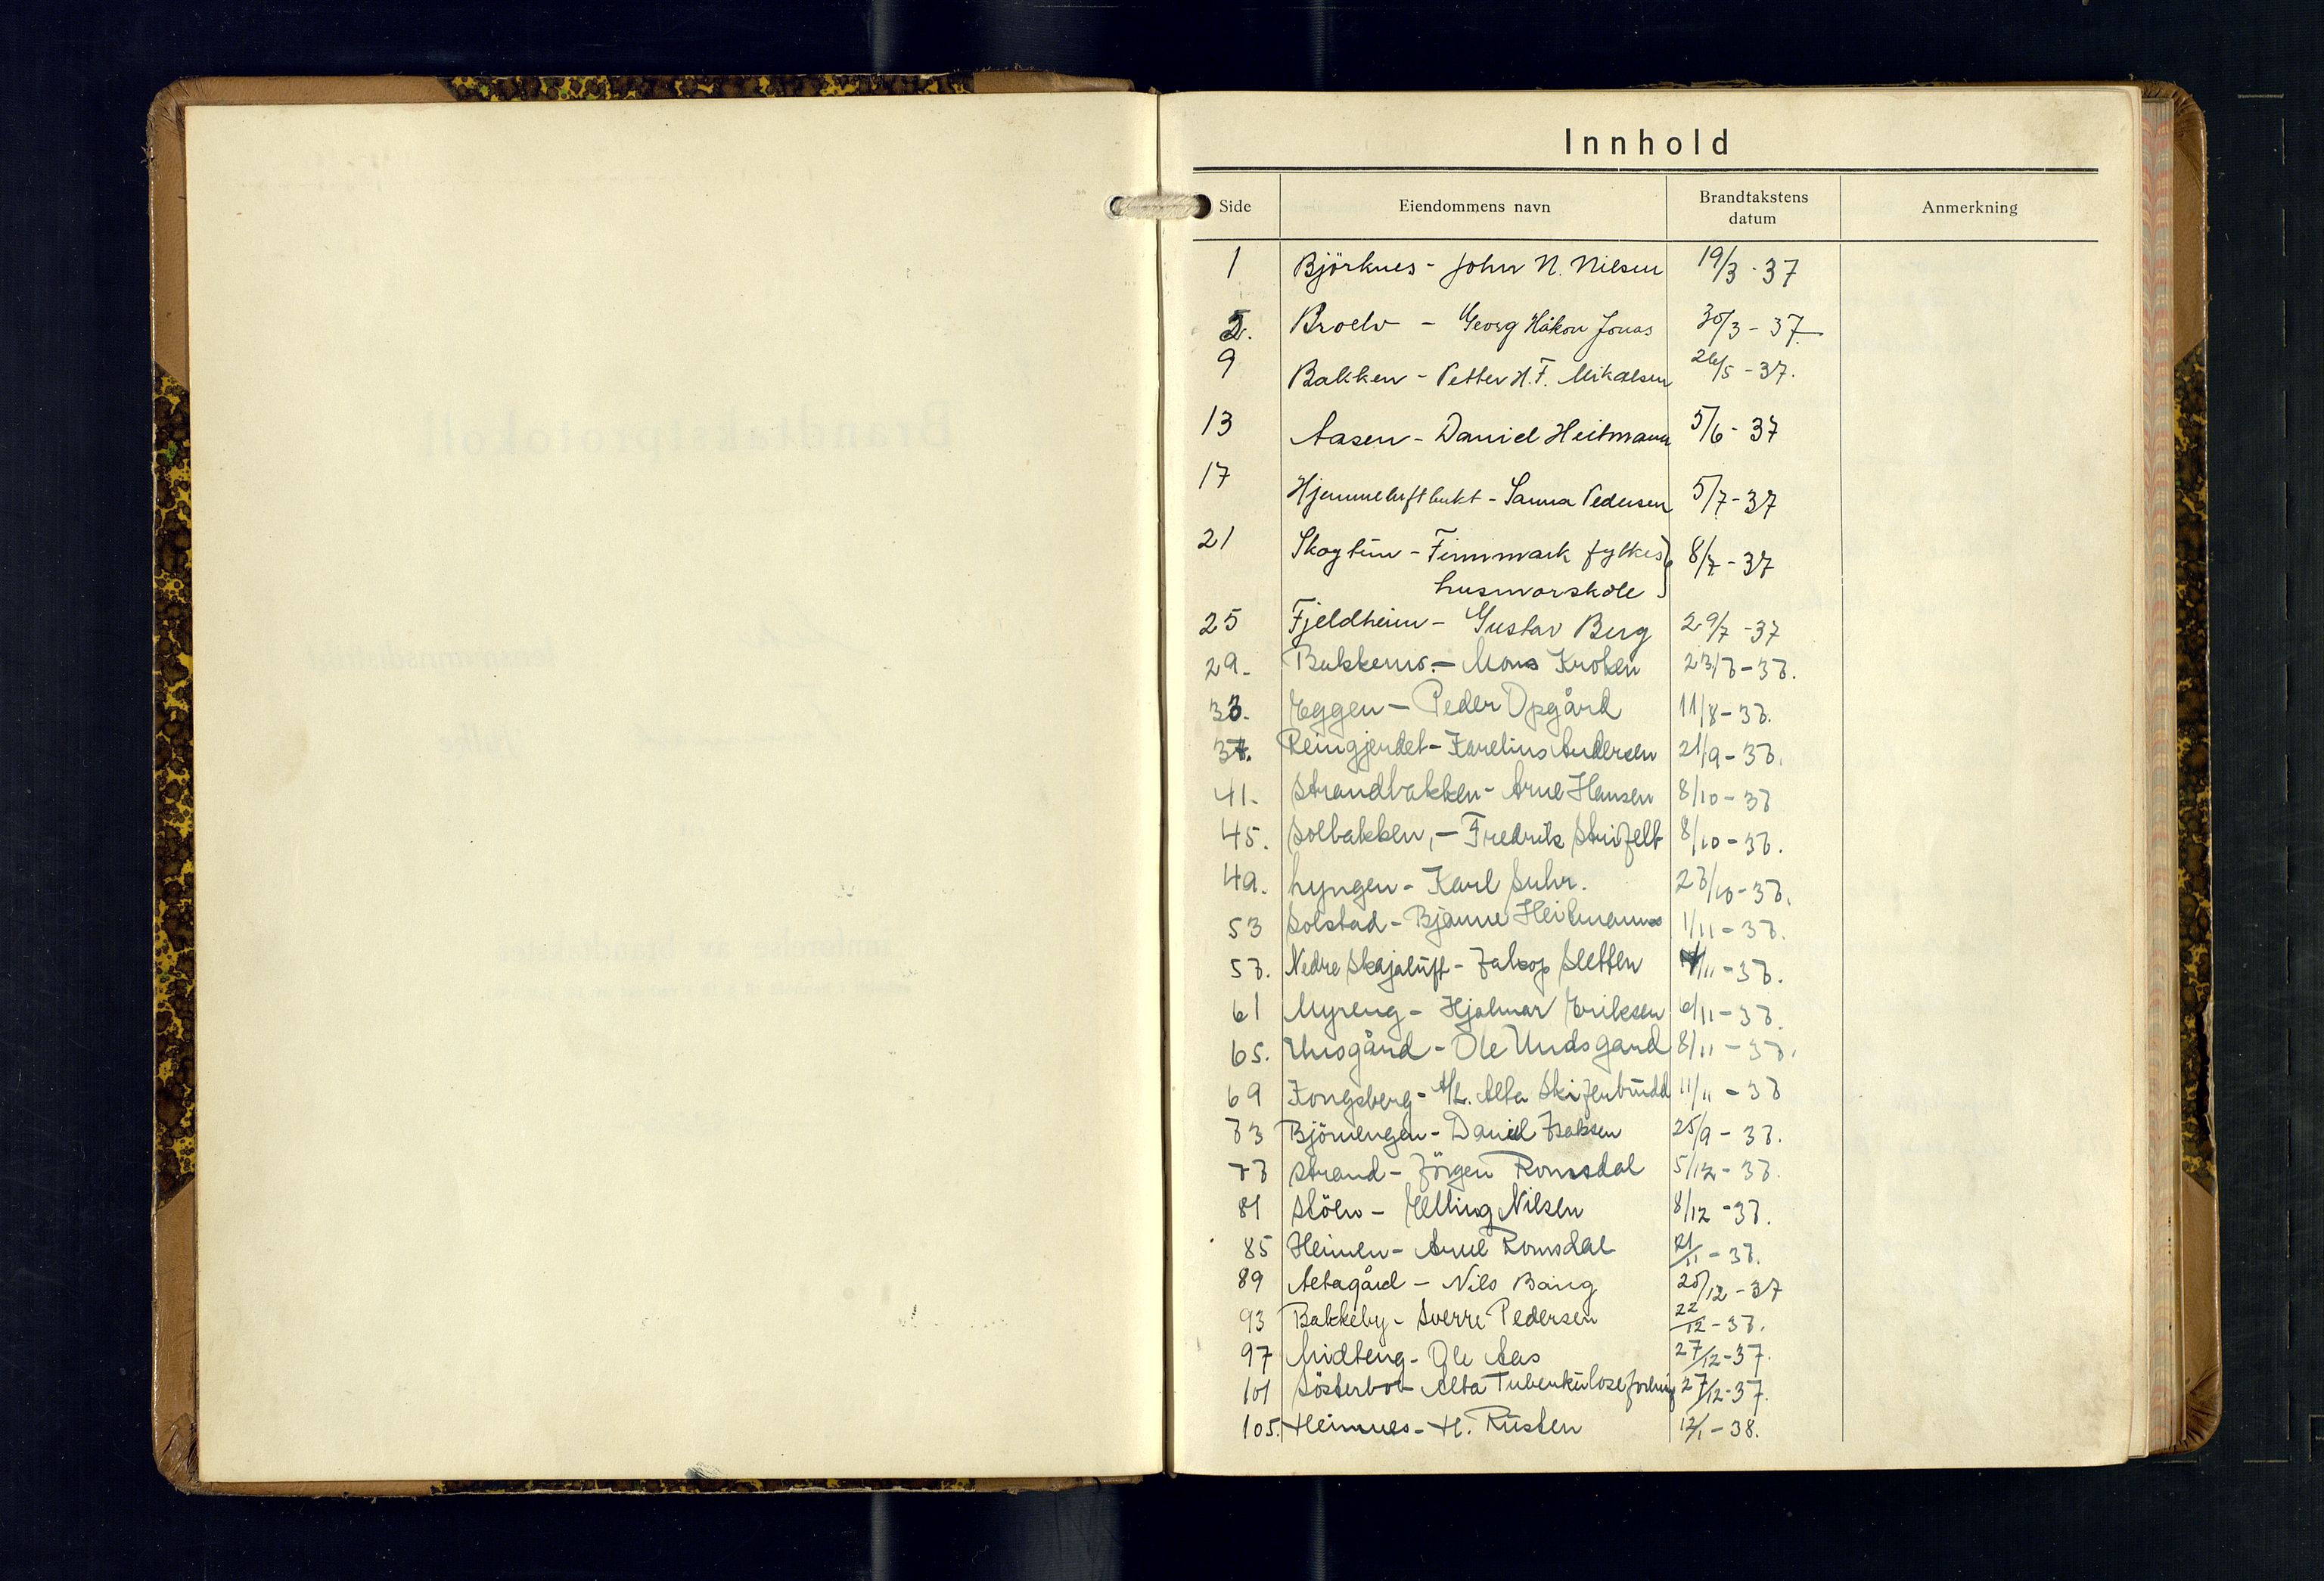 Innhold
Side Eiendommens navn Brandtakstens datum Anmerkning
1 Björknes - John N. Nilsen 19/3-37
5. Broelv - Georg Håkon Jonas 30/3-37
9 Bakken - Petter H. F. Mikalsen 26/5-37.
13 Aasen - Daniel Heitmann 5/6-37
17 Hjemmeluftbukt - Sanna Pedersen 5/7-37
21 Skogtun - Finnmark fylkes 8/7-37
husmorskole
25 Fjeldheim - Gustav Berg 29/7-37
29. - Mons Kroken 23/7-37.
33. Eggen - Peder Opgård 11/8-37.
37. Reingjerdet - Karelius Andersen 21/9-37.
41. Strandbakken - Arne Hansen 8/10-37
45. Solbakken, - Fredrik Strifelt 8/10-37.
49. Lyngen - Karl Suhr. 27/10-37.
53 Solstad - Bjarne Heitmann 1/11-37.
57. Nedre Skajaluft - Jakop Sletten /11-37.
61 Myreng - Hjalmar Eriksen 6/11-37.
65. - Ole Undsgard 8/11-37.
69 Kongsberg - A/L. Alta Skiferbrudd 11/11-37
73 Björnengen - Daniel Isaksen 25/9-37.
77 Strand - Jörgen Romsdal 5/12-37.
81 Stöln - Elling Nilsen 8/12-37.
85 Heimen - Arne Romsdal 21/11-37.
89 Altagård - Nils Bang 20/12-37
93 Bakkeby - Sverre Pedersen 22/12-37.
97 Midteng - Ole Aas 27/12-37.
101 Sösterbo - Alta Tuberkulosefordning 27/12-37.
105. Heimnes - H. Rüsten 12/1-38.